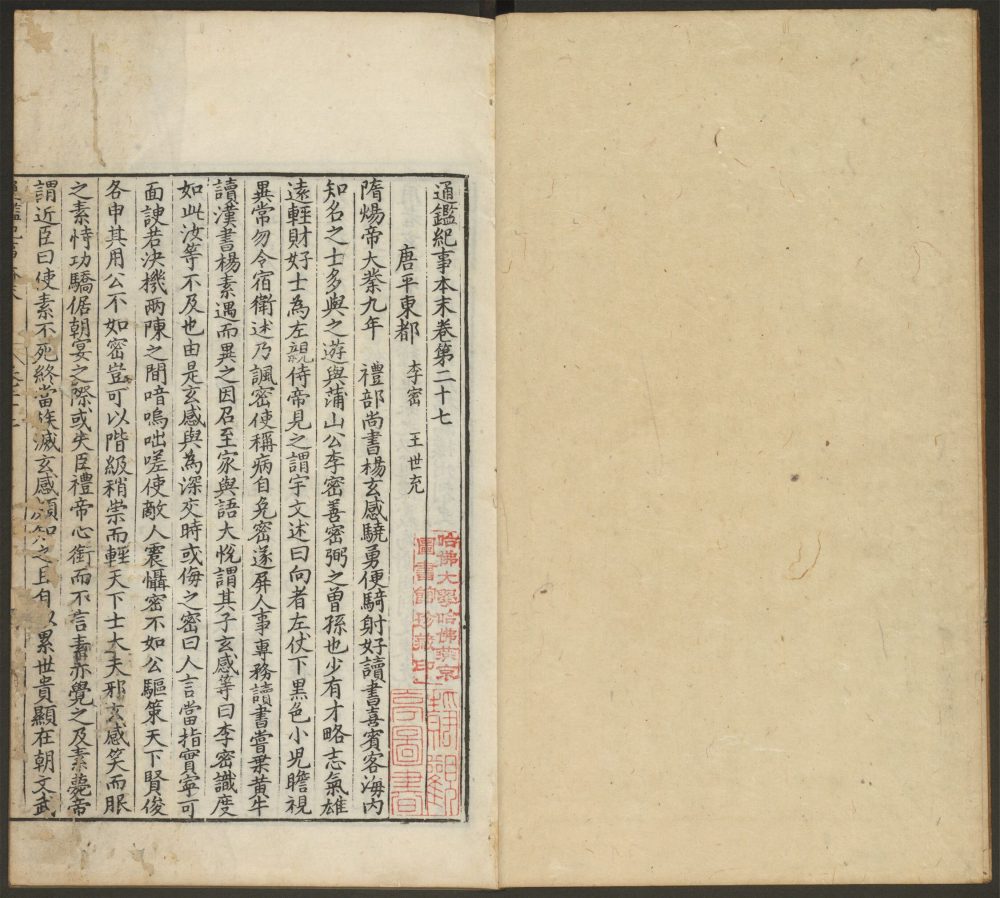 通鑑紀事本末卷第二十七
唐平東都 李密 王世充
隋煬帝大業九年 禮部尚書楊玄感驍勇便騎射好讀書喜賓客海内
知名之士多與之遊與蒲山公李密善密弼之曾孫也少有才略志氣雄
遠輕財好士為左親侍帝見之謂宇文述曰向者左仗下黒色小兒瞻視
異常勿令宿衛述乃諷密使稱病自免密遂屏人事專務讀書嘗乗黄牛
讀漢書楊素遇而異之因召至家與語大悅謂其子玄感等曰李密識度
如此汝等不及也由是玄感與為深交時或侮之密曰人言當指實寧可
面諛若決機兩陳之間喑嗚咄嗟使敵人震懾密不如公驅策天下賢俊
各申其用公不如密豈可以階級稍崇而輕天下士大夫邪玄感笑而服
之素恃功驕倨朝宴之際或失臣禮帝心銜而不言素亦覺之及素薨帝
謂近臣曰使素不死終當族滅玄感頗知之且自以累世貴顯在朝文武
哈佛大學哈佛燕京
圖書館珍藏印
圖書